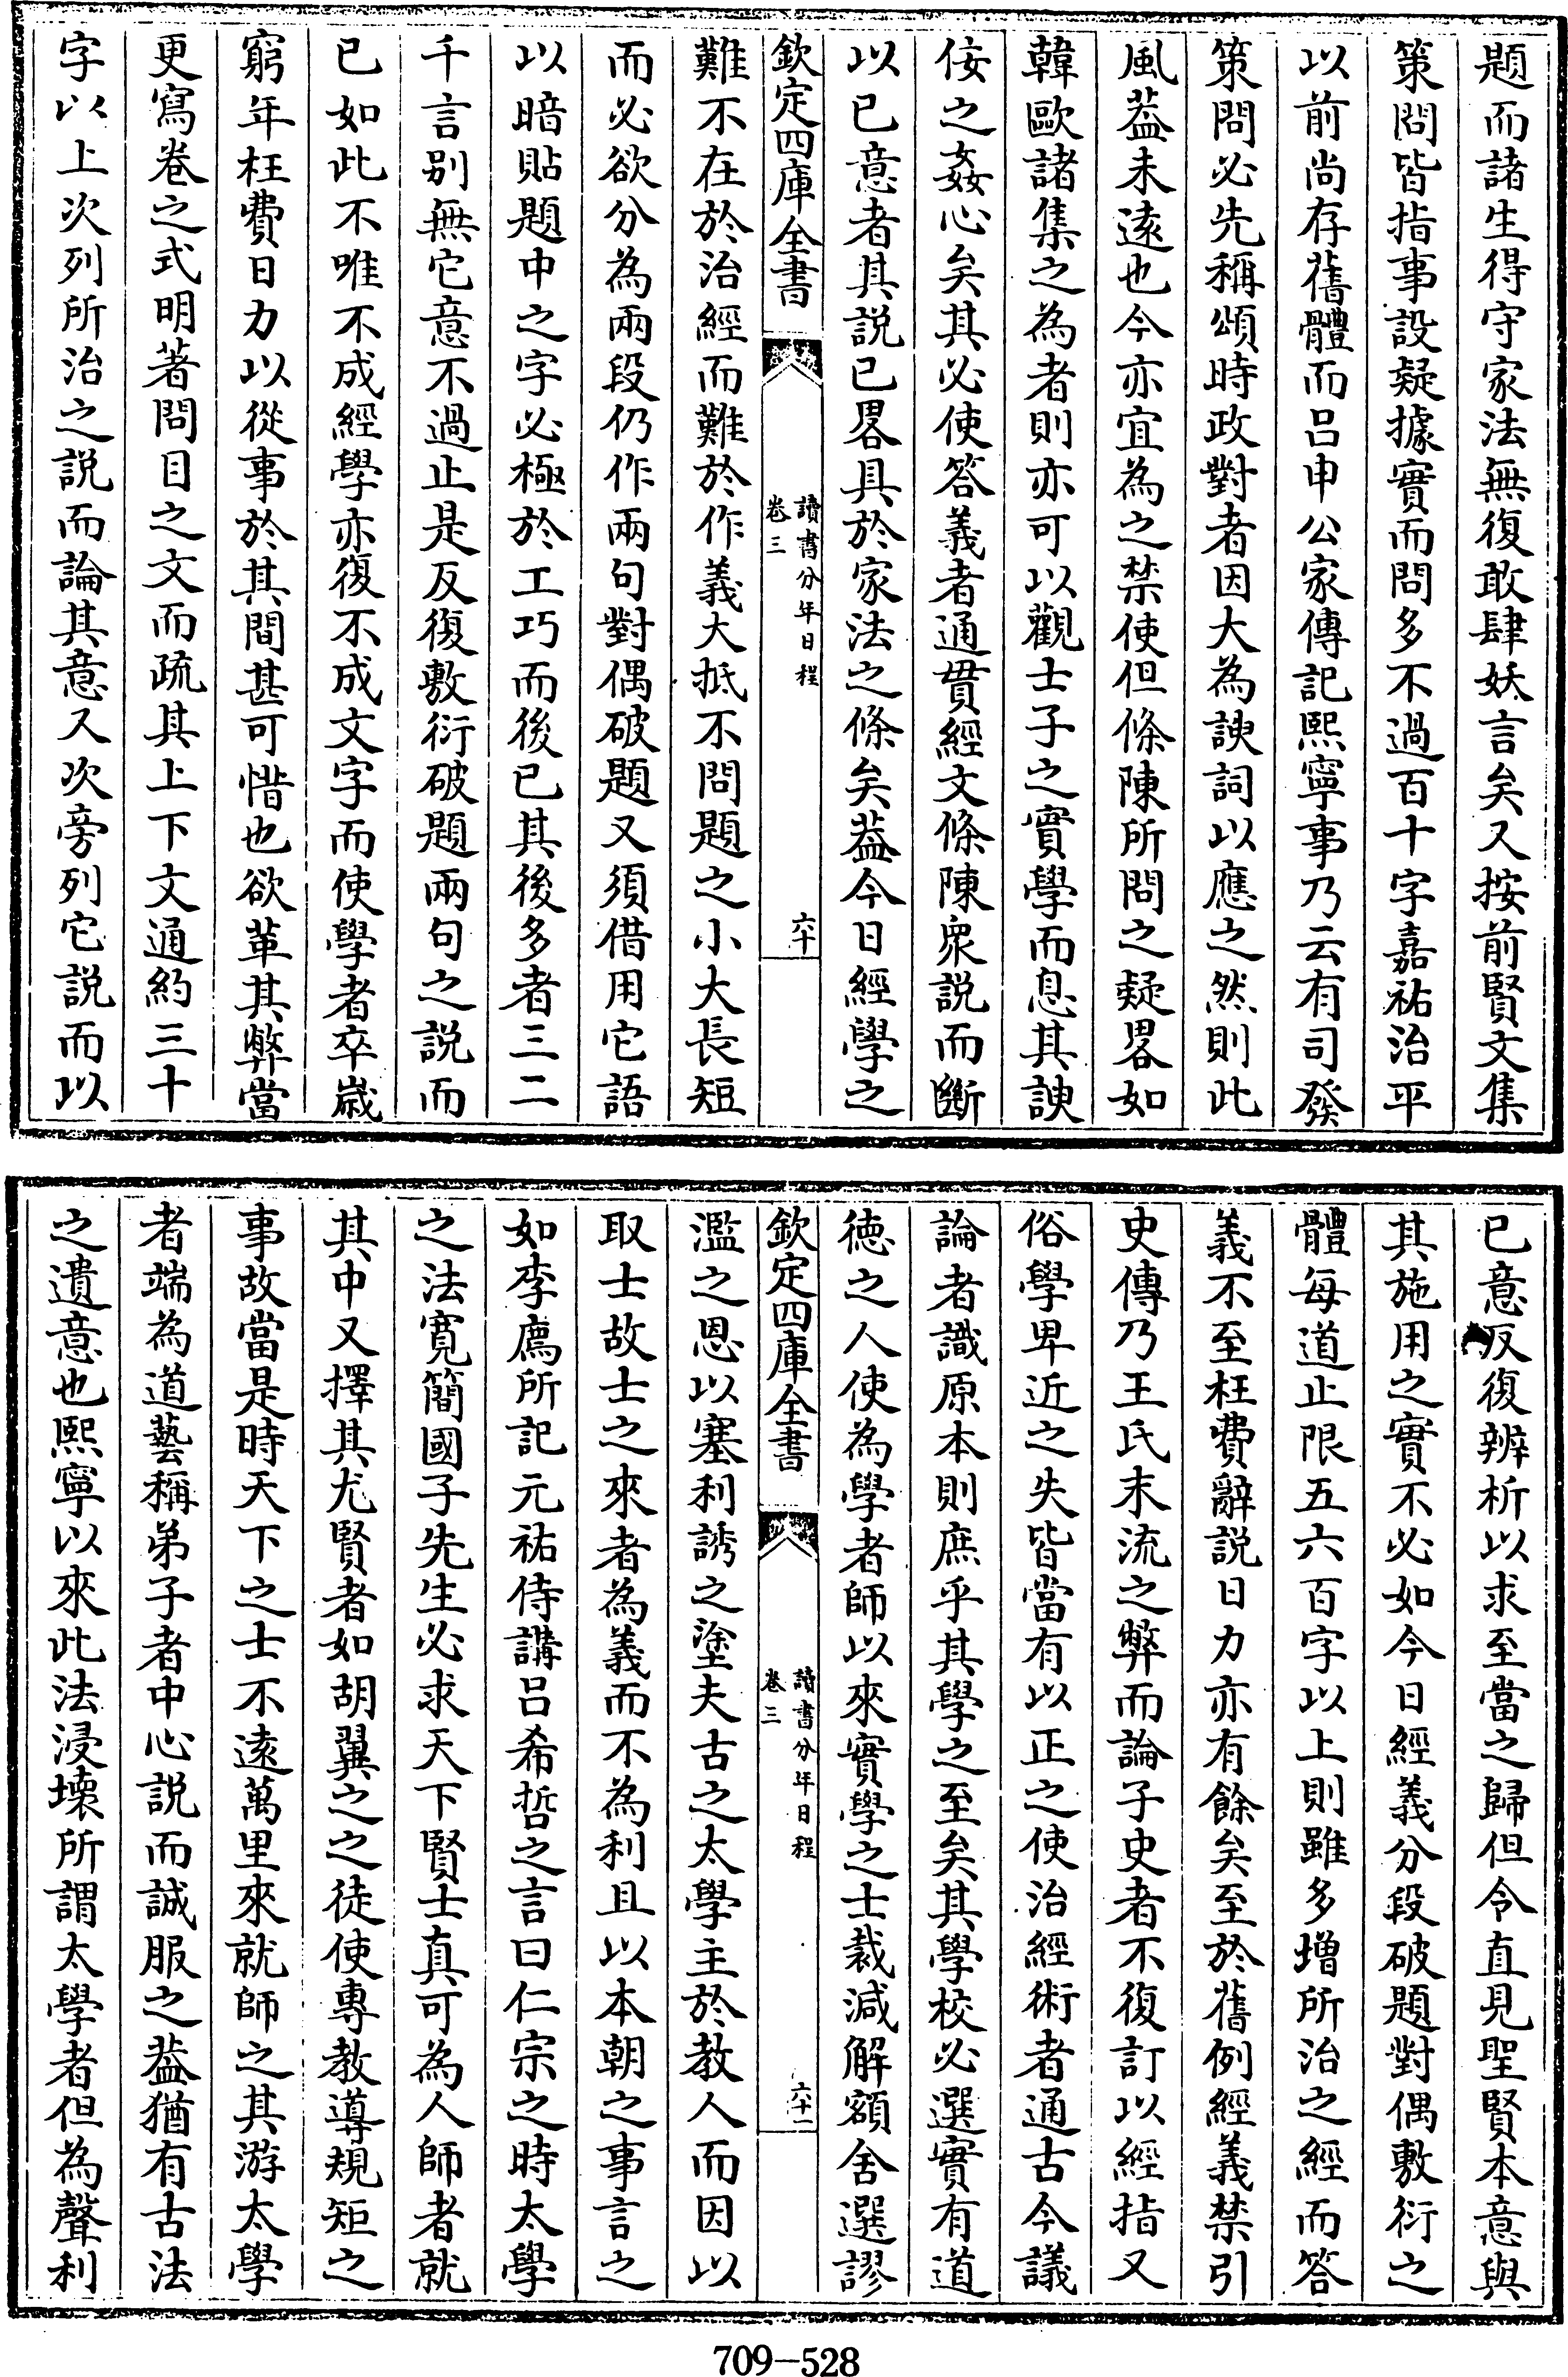 題而諸生得守家法無復敢肆妖言矣又按前賢文集
策問皆指事設疑據實而問多不過百十字嘉祐治平
以前尚存舊體而呂申公家傳記熙寧事乃云有司發
策問必先稱頌時政對者因大為諛詞以應之然則此
風葢未遠也今亦宜為之禁使但條陳所問之疑畧如
韓歐諸集之為者則亦可以觀士子之實學而息其諛
佞之姦心矣其必使答義者通貫經文條陳衆説而斷
以已意者其説已畧具於家法之條矣葢今日經學之
欽定四庫全書
讀書分年日程
卷三
六十
難不在於治經而難於作義大抵不問題之小大長短
而必欲分為兩段仍作兩句對偶破題又須借用它語
以暗貼題中之字必極於工巧而後已其後多者三二
千言别無它意不過止是反復敷衍破題兩句之説而
已如此不唯不成經學亦復不成文字而使學者卒嵗
窮年枉費日力以從事於其間甚可惜也欲革其弊當
更寫卷之式明著問目之文而疏其上下文通約三十
字以上次列所治之説而論其意又次旁列它説而以
已意反復辨析以求至當之歸但令直見聖賢本意與
其施用之實不必如今日經義分段破題對偶敷衍之
體每道止限五六百字以上則雖多增所治之經而答
義不至枉費辭説日力亦有餘矣至於舊例經義禁引
史傳乃王氏末流之弊而論子史者不復訂以經指又
俗學卑近之失皆當有以正之使治經術者通古今議
論者識原本則庶乎其學之至矣其學校必選實有道
德之人使為學者師以來實學之士裁減解額舍選謬
欽定四庫全書
讀書分年日程
卷三
六十一
濫之恩以塞利誘之塗夫古之太學主於教人而因以
取士故士之來者為義而不為利且以本朝之事言之
如李廌所記元祐侍講呂希哲之言曰仁宗之時太學
之法寛簡國子先生必求天下賢士真可為人師者就
其中又擇其尤賢者如胡翼之之徒使專教導規矩之
事故當是時天下之士不遠萬里來就師之其游太學
者端為道藝稱弟子者中心説而誠服之葢猶有古法
之遺意也熙寧以來此法浸壊所謂太學者但為聲利
709-528